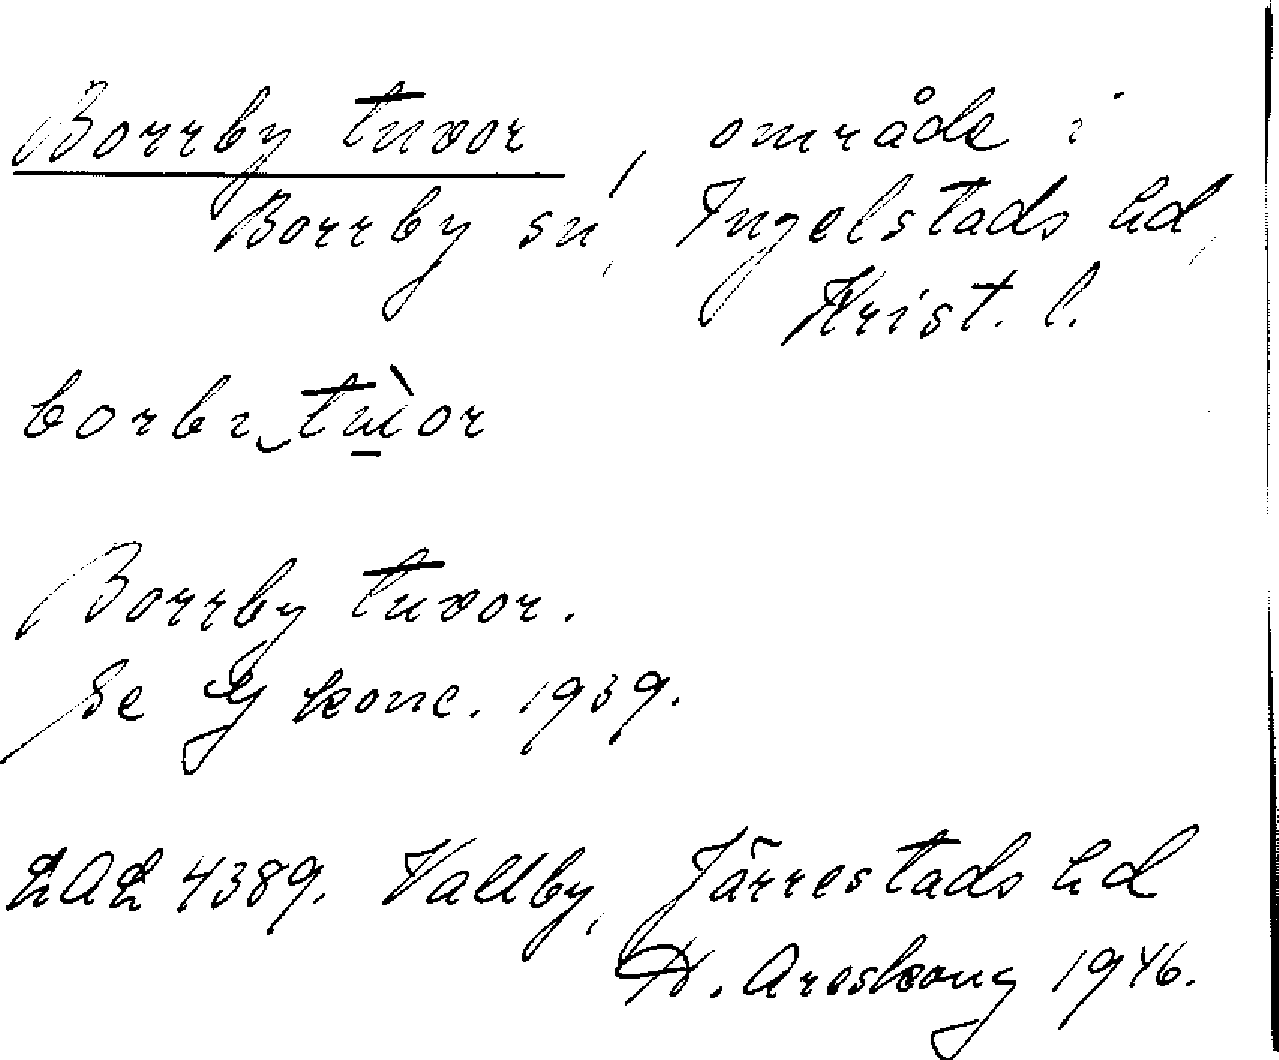 Borrby tuvor, område i
Borrby sn, Ingelstads hd,
Krist. l.
borbı tùor
Borrby tuvor.
Se Ej konc. 1939.
LAL 4389. Vallby, Järrestads hd
H. Areskoug 1946.